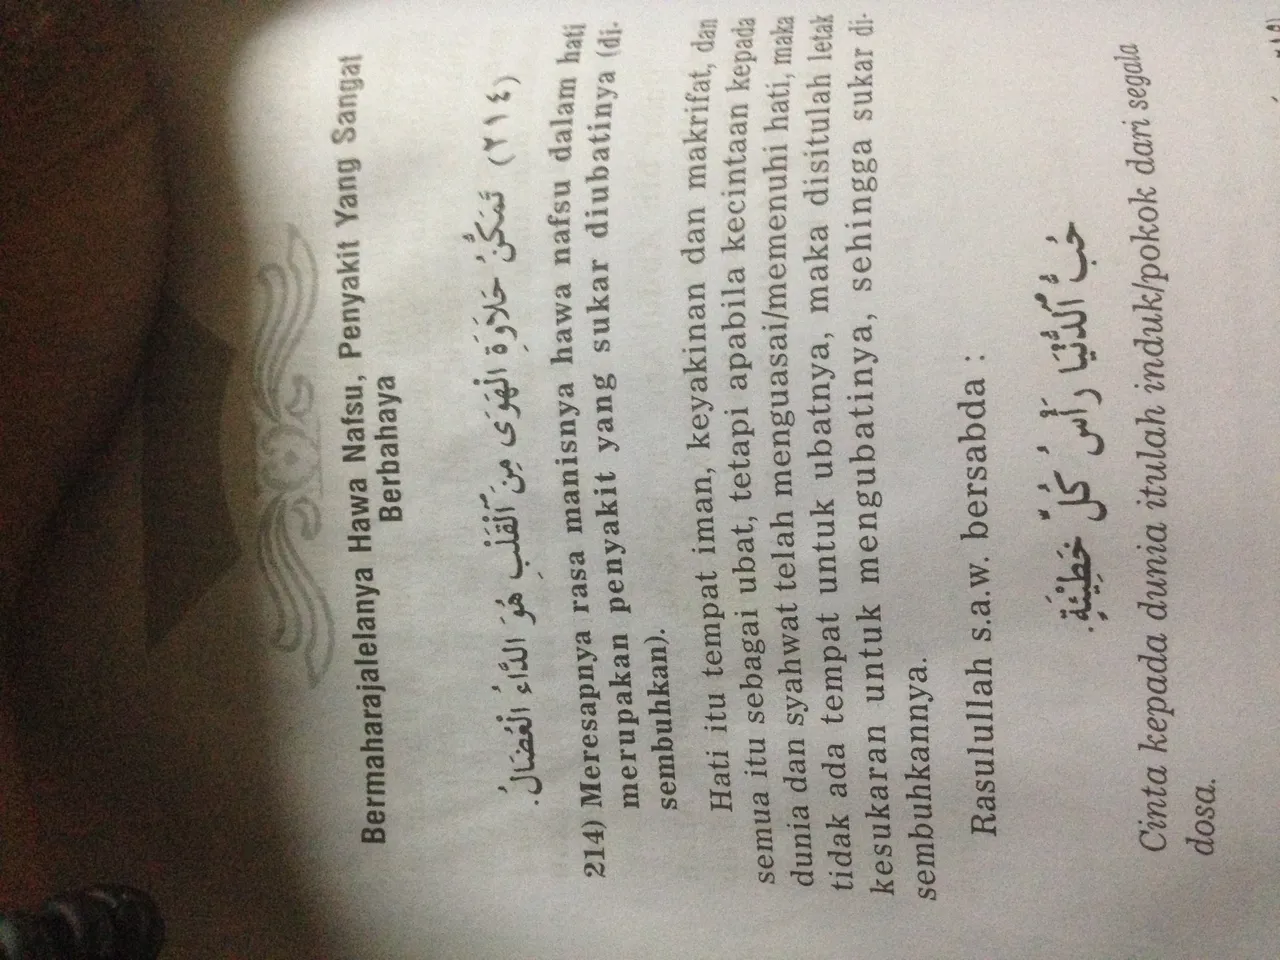 Bermaharajalelanya Hawa Nafsu, Penyakit Yang Sangat
Berbahaya
(٢١٤) تَمَكُّنُ حَلَاوَةِ الْهَوَى مِنَ الْقَلْبِ هُوَ الدَّاءُ الْعُضَالُ.
214) Meresapnya rasa manisnya hawa nafsu dalam hati
merupakan penyakit yang sukar diubatinya (di-
sembuhkan).
Hati itu tempat iman, keyakinan dan makrifat, dan
semua itu sebagai ubat, tetapi apabila kecintaan kepada
dunia dan syahwat telah menguasai/memenuhi hati, maka
tidak ada tempat untuk ubatnya, maka disitulah letak
kesukaran untuk mengubatinya, sehingga sukar di-
sembuhkannya.
Rasulullah s.a.w. bersabda :
حُبُّ الدُّنْيَا رَأْسُ كُلِّ خَطِيْئَةٍ.
Cinta kepada dunia itulah induk/pokok dari segala
dosa.